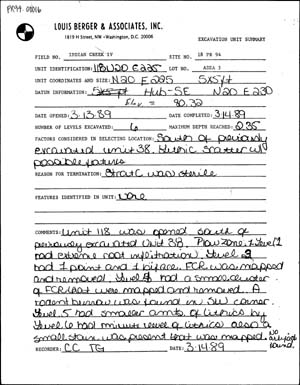 PR94.01016
LOUIS BERGER & ASSOCIATES, INC.
1819 H Street, NW · Washington, D.C. 20006
EXCAVATION UNIT SUMMARY
FIELD NO. INDIAN CREEK IV SITE NO. 18 PR 94
UNIT IDENTIFICATION: 118 N20 E225 LOT NO. AREA 3
UNIT COORDINATES and SIZE: N20 E225 5x5ft
DATUM INFORMATION: Hub-SE N20 E230
Elev = 90.32
DATE OPENED: 3.13.89 DATE COMPLETED: 3.14.89
NUMBER OF LEVELS EXCAVATED: 6 MAXIMUM DEPTH REACHED:
FACTORS CONSIDERED IN SELECTING LOCATION: South of previously
excavated unit 38. Lithic scatter w/
possible feature
REASON FOR TERMINATION: Strat C was sterile
FEATURES IDENTIFIED IN UNIT: none
COMMENTS: Unit 118 was opened south of
previously excavated Unit 38. Plow zone, Level 1
had extreme root infiltration. Level
had 1 point and 1 biface. FCR was mapped
and removed. Level 4 had a small cluster
of FCR that were mapped and removed. A
rodent burrow was found in SW corner.
Level 5 had smaller amts. of lithics by
Level 6 had minute level of lithics also a
small stain was present that was mapped. No
artifacts
found.
RECORDER: CC TG DATE: 3.14.89